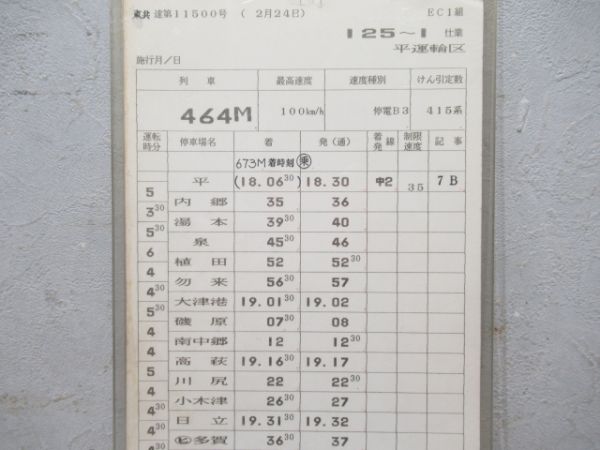 東北 達第11500号 ( 2月24日)
EC1組
125～1 仕業
平運輸区
施行月/日
列車 最高速度 速度種別 けん引定数
464M 100km/h 停電B3 415系
運転時分 停車場名 着 発(通) 着発線 制限速度 記事
673M着時刻 乗
平 (18.06 30) 18.30 中2 35 7B
5
内郷 35 36
3 30
湯本 39 30 40
5 30
泉 45 30 46
6
植田 52 52 30
4
勿来 56 30 57
4 30
大津港 19.01 30 19.02
5 30
磯原 07 30 08
4
南中郷 12 12 30
4
高萩 19.16 30 19.17
5
川尻 22 22 30
4
小木津 26 30 27
4 30
日立 19.31 30 19.32
4 30
多賀 36 30 37